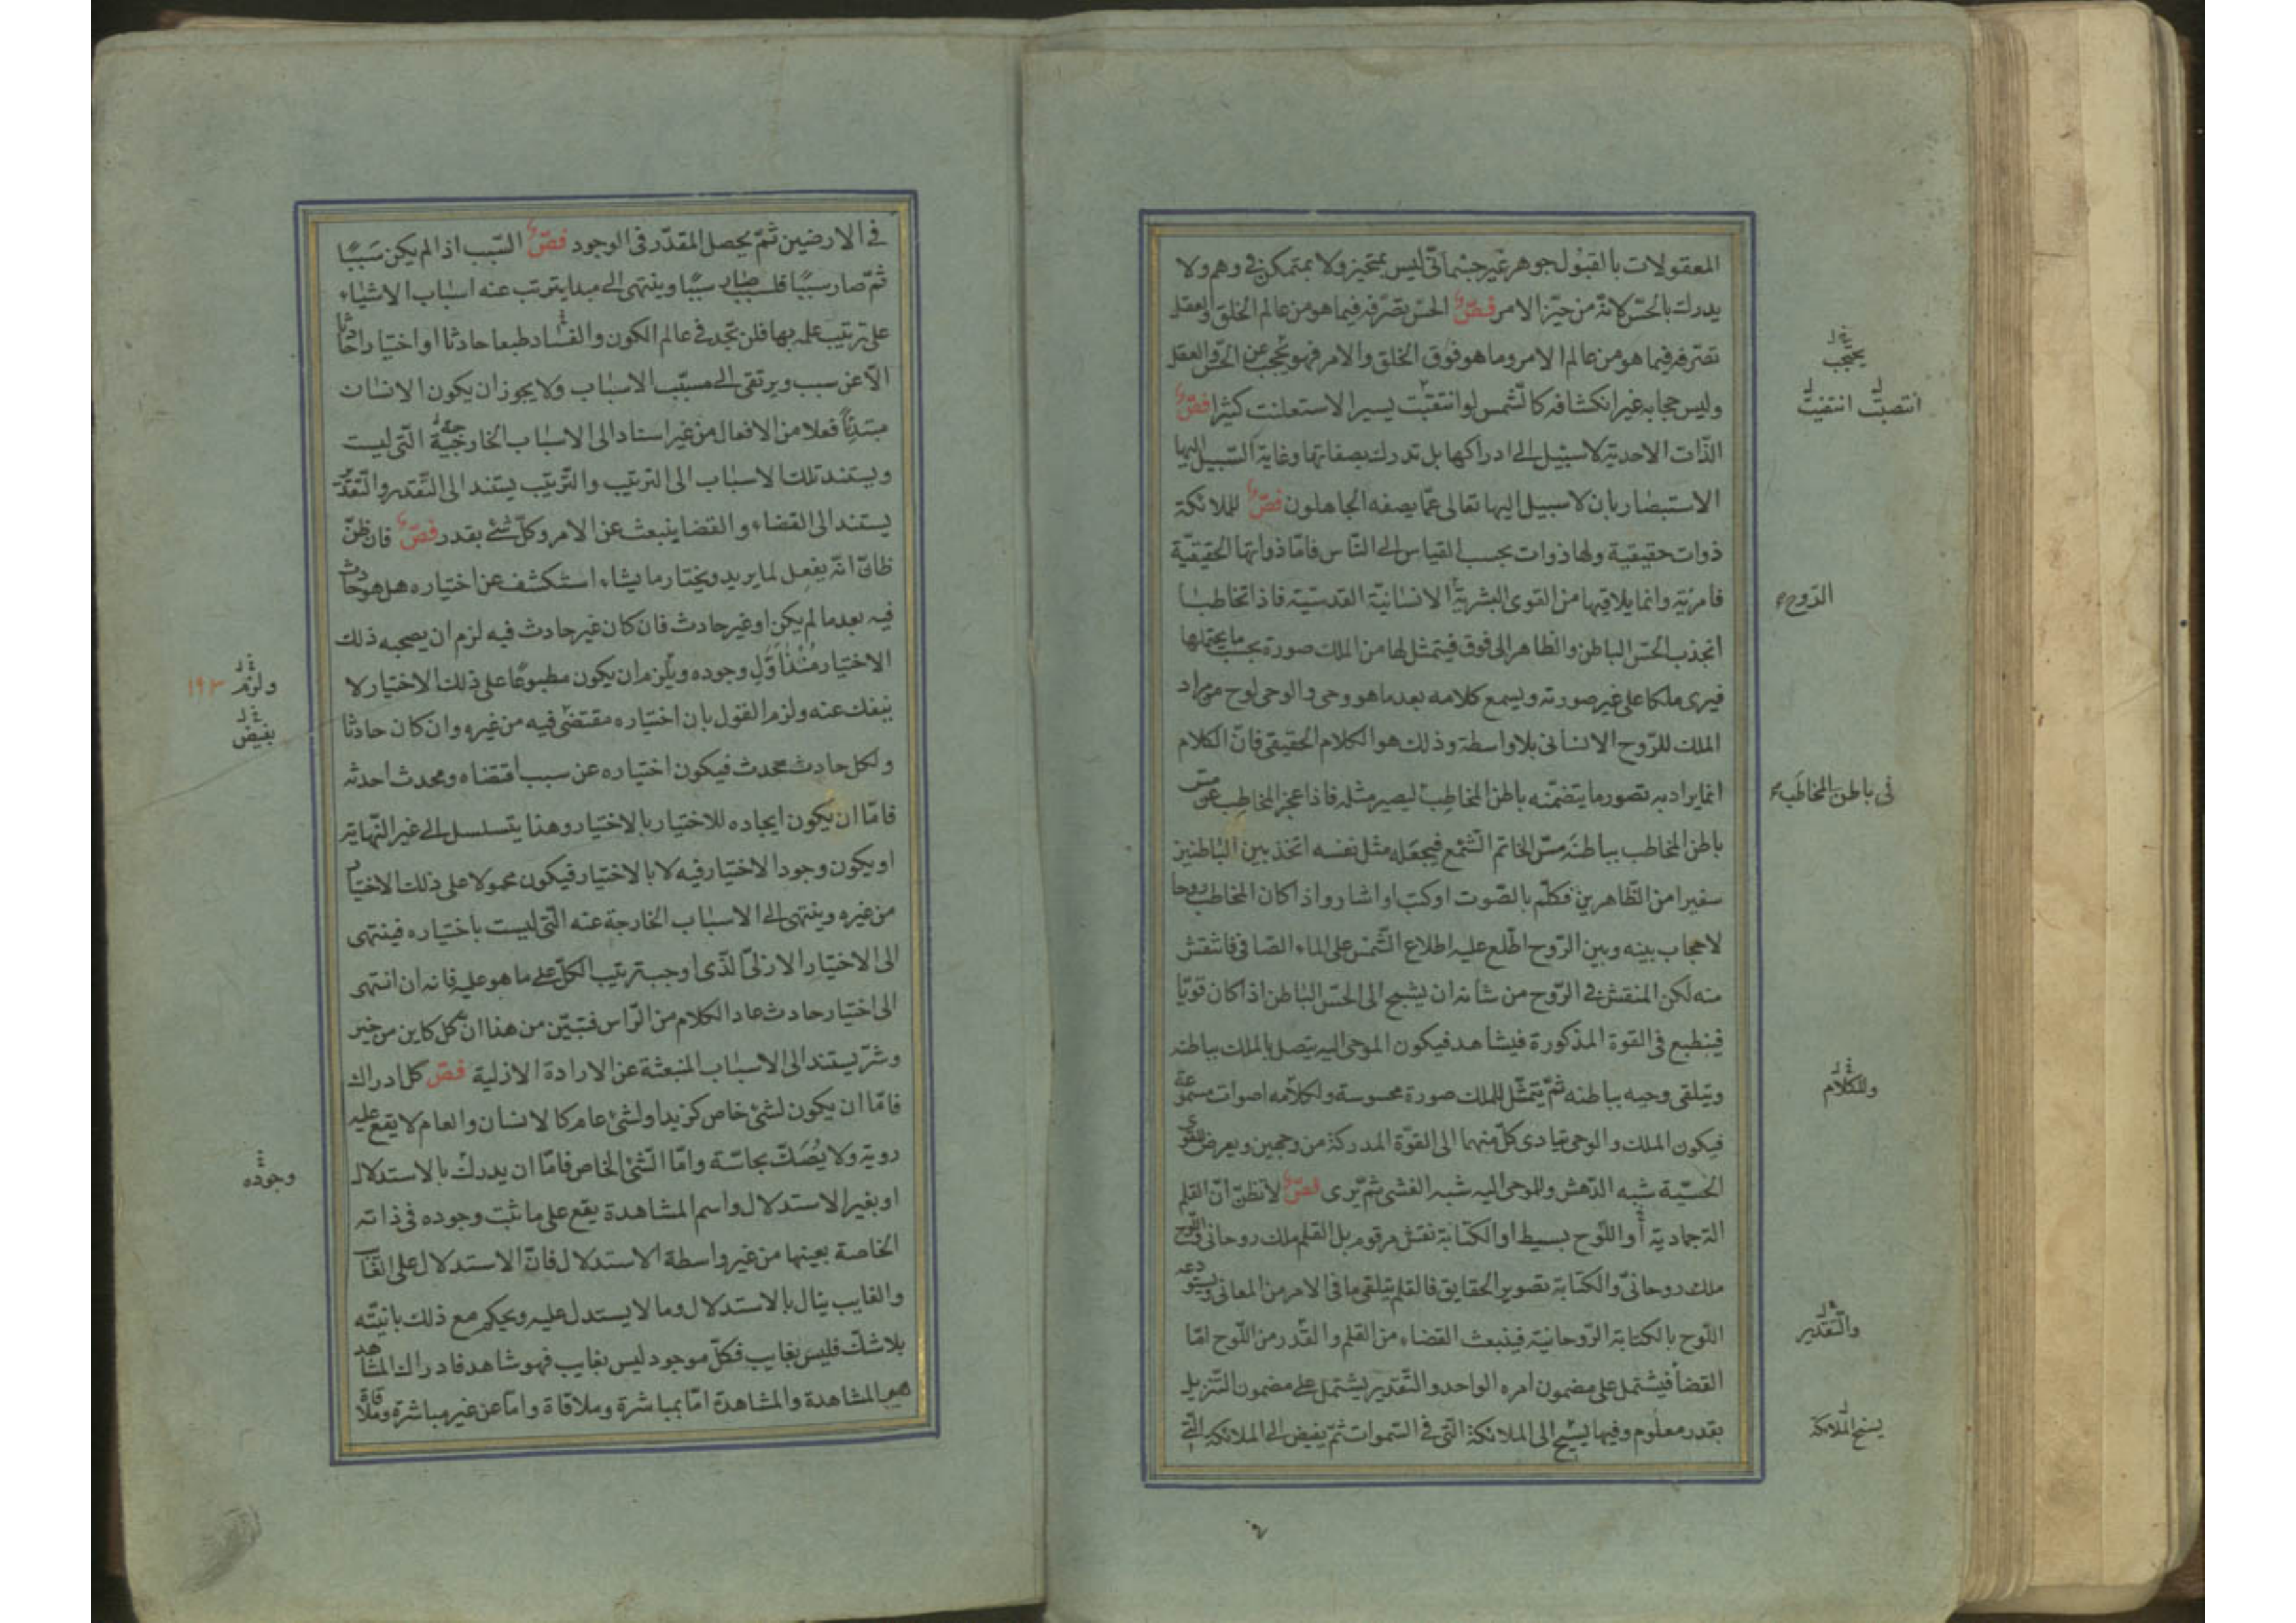 المعقولات بالقبول جوهر غير جسمانى ليس بمتحيز ولا بمتمكن فى وهم ولا
يدرك بالحس لانه من حيز الامر فصّ الحس تصرفه فيما هو من عالم الخلق والعقل
تصرفه فيما هو من عالم الامر وما هو فوق الخلق والامر فهو محتجب عن الحس والعقل
وليس حجابه غير انكشافه كالشمس لو انتقبت يسيرا لاستعلنت كثيرا فصّ
الذّات الاحدية لا سبيل الى ادراكها بل تدرك بصفاتها وغاية السّبيل اليها
الاستبصار بان لا سبيل اليها تعالى عمّا يصفه الجاهلون فصّ للملائكة
ذوات حقيقية ولها ذوات بحسب القياس الى النّاس فامّا ذواتها الحقيقيّة
فامريّة وانما يلاقيها من القوى البشرية الانسانيّة القدسيّة فاذا تخاطبا
انجذب الحسّ الباطن والظاهر الى فوق فيتمثل لها من الملك صورة بحسب ما يحتملها
فيرى ملكا على غير صورته ويسمع كلامه بعد ما هو وحى والوحى لوح من مراد
الملك للرّوح الانسانى بلا واسطة وذلك هو الكلام الحقيقى فانّ الكلام
انما يراد به تصور ما يتضمّنه باطن المخاطِب ليصير مثله فاذا عجز المخاطِب عن مسّ
باطن المخاطب بباطنه مسّ الخاتم الشّمع فيجعله مثل نفسه اتخذ بين الباطنين
سفيرا من الظّاهرين فكلّم بالصّوت او كتب او اشار واذا كان المخاطب روحا
لا حجاب بينه وبين الرّوح اطّلع عليه اطلاع الشّمس على الماء الصّافى فانتقش
منه لكن المنقش فى الرّوح من شانه ان يشبح الى الحسّ الباطن اذا كان قويّا
فينطبع فى القوة المذكورة فيشاهد فيكون الموحى اليه يتصل بالملك بباطنه
ويتلقى وحيه بباطنه ثمّ يتمثّل للملك صورة محسوسة ولكلامه اصوات مسموعة
فيكون الملك والوحى يتادى كلّ منهما الى القوّة المدركة من وجهين ويعرض للقوى
الحسّيّة شبه الدّهش وللموحى اليه شبه الغشى ثم يرى فصّ لا تظنّ انّ القلم
الة جمادية أو اللّوح بسيط او الكتابة نقش مرقوم بل القلم ملك روحانى واللّوح
ملك روحانىّ والكتابة تصوير الحقايق فالقلم يتلقى ما فى الامر من المعانى ويستودعه
اللّوح بالكتابة الرّوحانية فينبعث القضاء من القلم والقدر من اللّوح امّا
القضا فيشتمل على مضمون امره الواحد والتّقدير يشتمل على مضمون التّنزيل
بقدر معلوم وفيها يسبح الى الملائكة التى فى السّموات ثمّ يفيض الى الملائكة التى
يحتجب
انتصبت انتفيت
الرّوح
فى باطن المخاطب
وللكلام
والتّقدير
يسنح الملائكة
فى الارضين ثمّ يحصل المقدّر فى الوجود فصّ السّبب اذا لم يكن سَببًا
ثمّ صار سببًا فلسبب صار سببًا وينتهى الى مبدا يترتب عنه اسباب الاشياء
على ترتيب علمه بها فلن تجد فى عالم الكون والفساد طبعا حادثا او اختيارا حادثا
الاّ عن سبب ويرتقى الى مسبّب الاسباب ولا يجوز ان يكون الانسان
مبتدئًا فعلا من الافعال من غير استناد الى الاسباب الخارجيّة التّى ليست
ويستند تلك الاسباب الى الترتيب والتّرتيب يستند الى التّقدير والتّقدير
يستند الى القضاء والقضا ينبعث عن الامر وكلّ شئ بقدر فصّ فان ظنّ
ظانّ انّه يفعل لما يريد ويختار ما يشاء استكشف عن اختياره هل هو حادث
فيه بعد ما لم يكن او غير حادث فان كان غير حادث فيه لزم ان يصحبه ذلك
الاختيار مُنْذُ اَوَّلِ وجوده ويلزم ان يكون مطبوعًا على ذلك الاختيار لا
ينفك عنه ولزم القول بان اختياره مقتضى فيه من غيره وان كان حادثا
ولكل حادث محدث فيكون اختياره عن سبب اقتضاه ومحدث احدثه
فامّا ان يكون ايجاده للاختيار بالاختيار وهذا يتسلسل الى غير النّهاية
او يكون وجود الاختيار فيه لا بالاختيار فيكون محمولا على ذلك الاختيار
من غيره وينتهى الى الاسباب الخارجة عنه الّتى ليست باختياره فينتهى
الى الاختيار الازلىّ الّذى اوجب ترتيب الكلّ على ما هو عليه فانه ان انتهى
الى اختيار حادث عاد الكلام من الرّاس فتبيّن من هذا ان كل كاين من خير
وشرّ يستند الى الاسباب المنبعثة عن الارادة الازلية فصّ كل ادراك
فامّا ان يكون لشئ خاص كزيد او لشئ عام كالانسان والعام لا يقع عليه
روية ولا يُصَكّ بحاسّة وامّا الشّئ الخاص فامّا ان يدرك بالاستدلال
او بغير الاستدلال واسم المشاهدة يقع على ما ثبت وجوده فى ذاته
الخاصة بعينها من غير واسطة الاستدلال فانّ الاستدلال على الغايب
والغايب ينال بالاستدلال وما لا يستدل عليه ويحكم مع ذلك بانيّته
بلا شكّ فليس بغايب فكلّ موجود ليس بغايب فهو شاهد فادراك المشاهد
هو المشاهدة والمشاهدة امّا بمباشرة وملاقاة وامّا عن غير مباشرة وملاقاة
ولزم ١٩٣
بفيض
وجوده